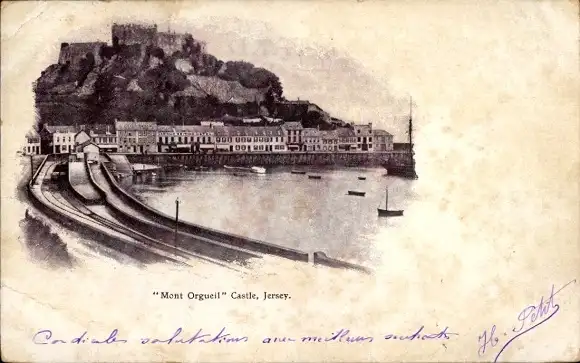 "Mont Orgueil" Castle, Jersey.
Cordiales salutations aux meilleurs souhaits
H. Petit